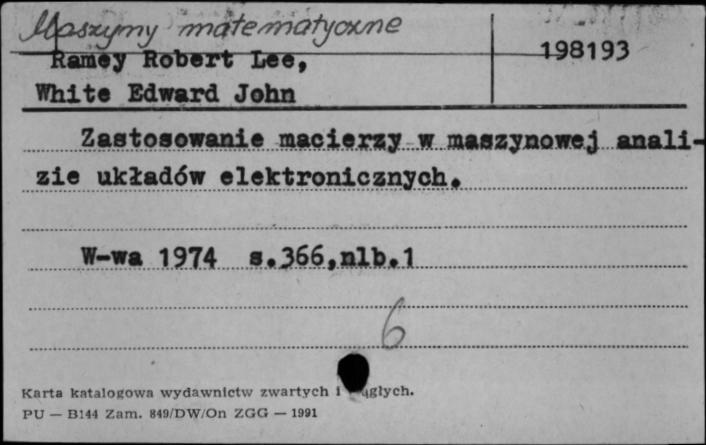 Maszyny matematyczne
Ramey Robert Lee,
198193
White Edward John
Zastosowanie macierzy w maszynowej anali-
zie układów elektronicznych.
W-wa 1974 s.366,nlb.1
6
Karta katalogowa wydawnictw zwartych i
PU — B144 Zam. 849/DW/On ZGG — 1991